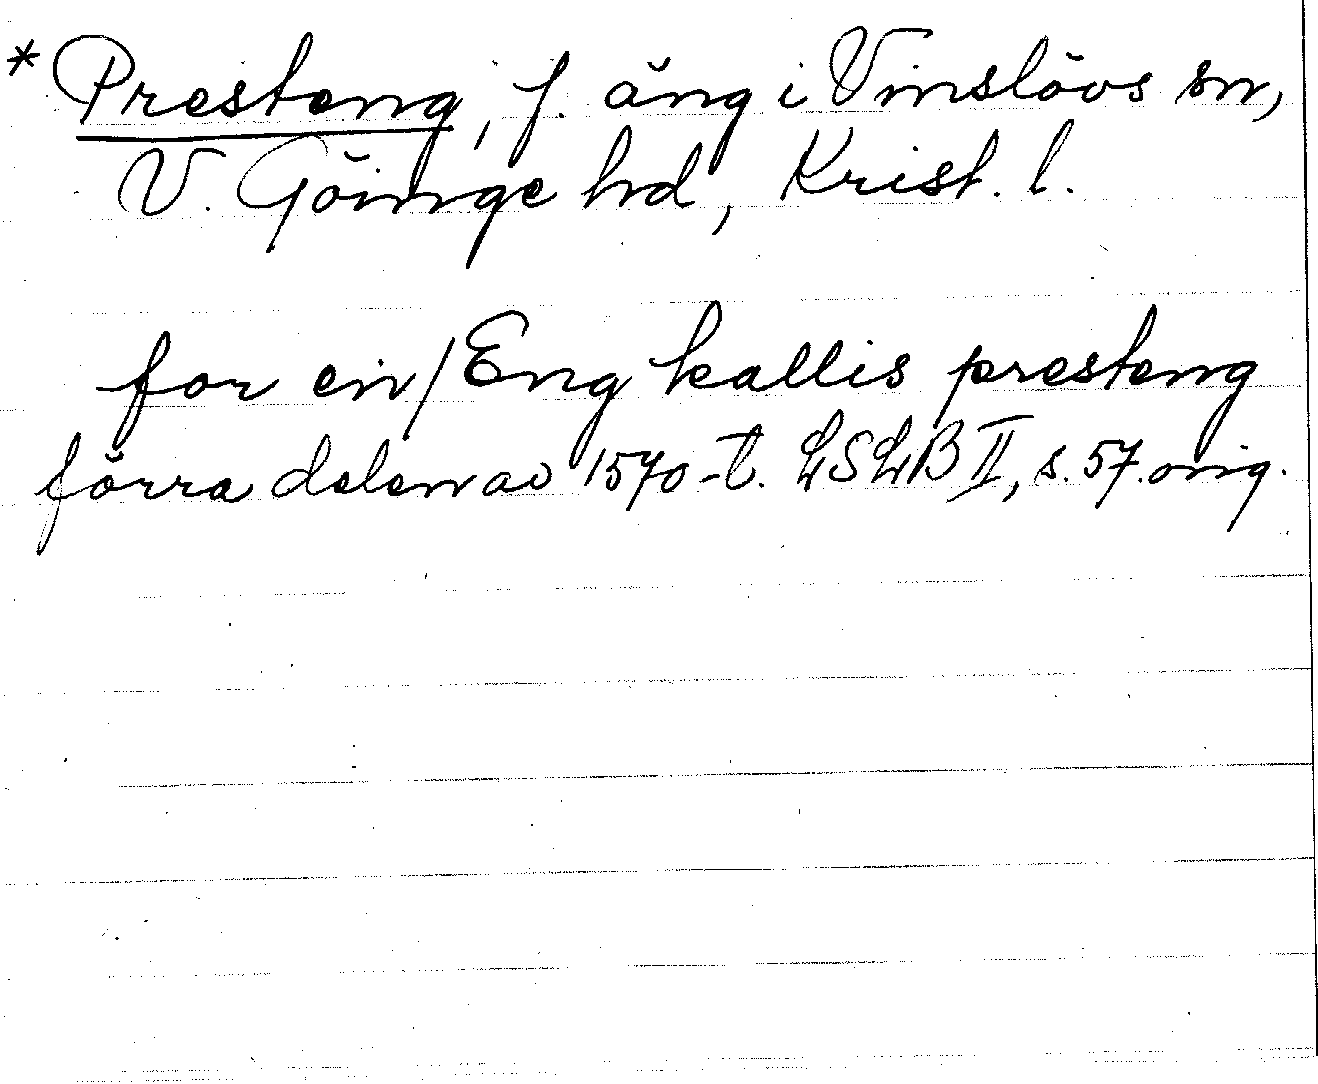 * Presteng, f. äng i Vinslövs sn,
V. Göinge hd, Krist. l.
for en / Eng kallis presteng
förra delen av 1570-t. LSLB II, s. 57. orig.